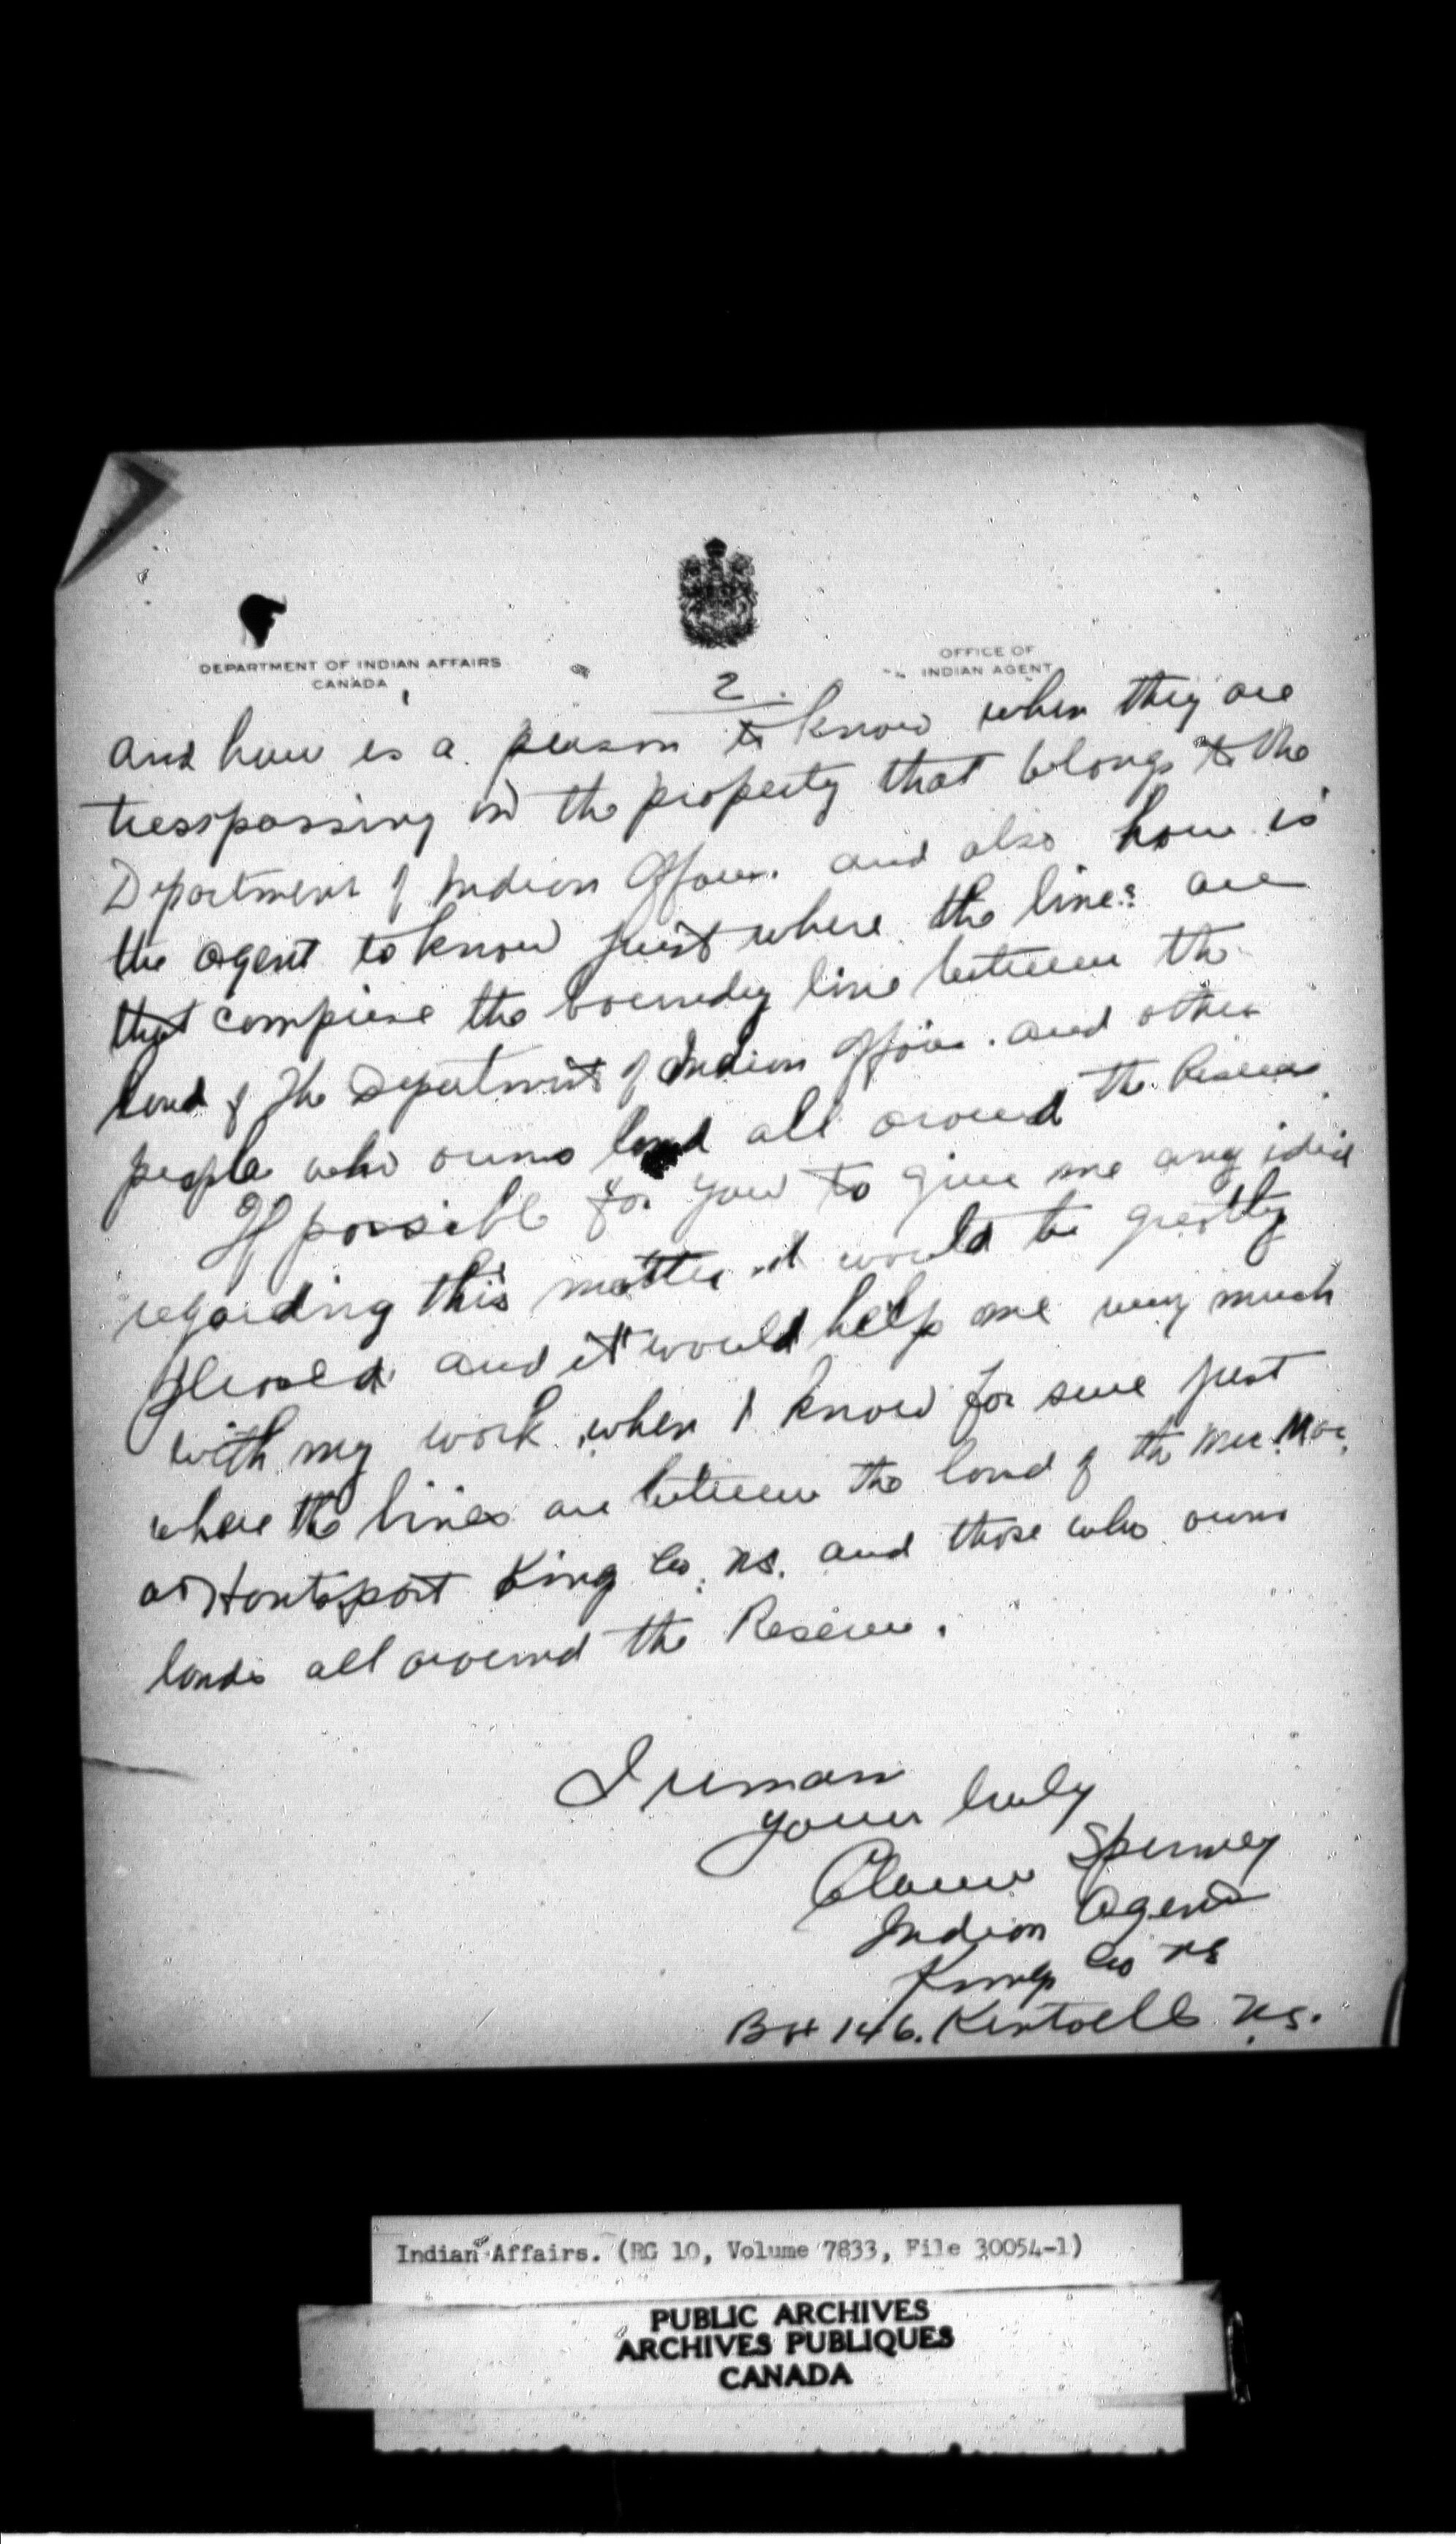 DEPARTMENT OF INDIAN AFFAIRS
CANADA
OFFICE OF
INDIAN AGENT
2.
and how is a person to know when they are
tresspassing on the property that belongs to the
Department of Indian Affairs. and also how is
the agent to know just where the lines are
that comprise the boundry line between the
land of The Department of Indian Affairs. and other
people who owns land all around the Reserve
If possible for you to give me any idea
regarding this matter it would be greatly
pleased and it would help me very much
with my work when I know for sure just
where the lines are between the land of the Mic Mac
at Hantsport King Co. N.S. and those who owns
lands all around the Reserve.
I remain
yours truly
Spinney
Indian Agent
Kings Co NS
Box 146. Kentville N.S.
Indian Affairs. (RG 10, Volume 7833, File 30054-1)
PUBLIC ARCHIVES
ARCHIVES PUBLIQUES
CANADA